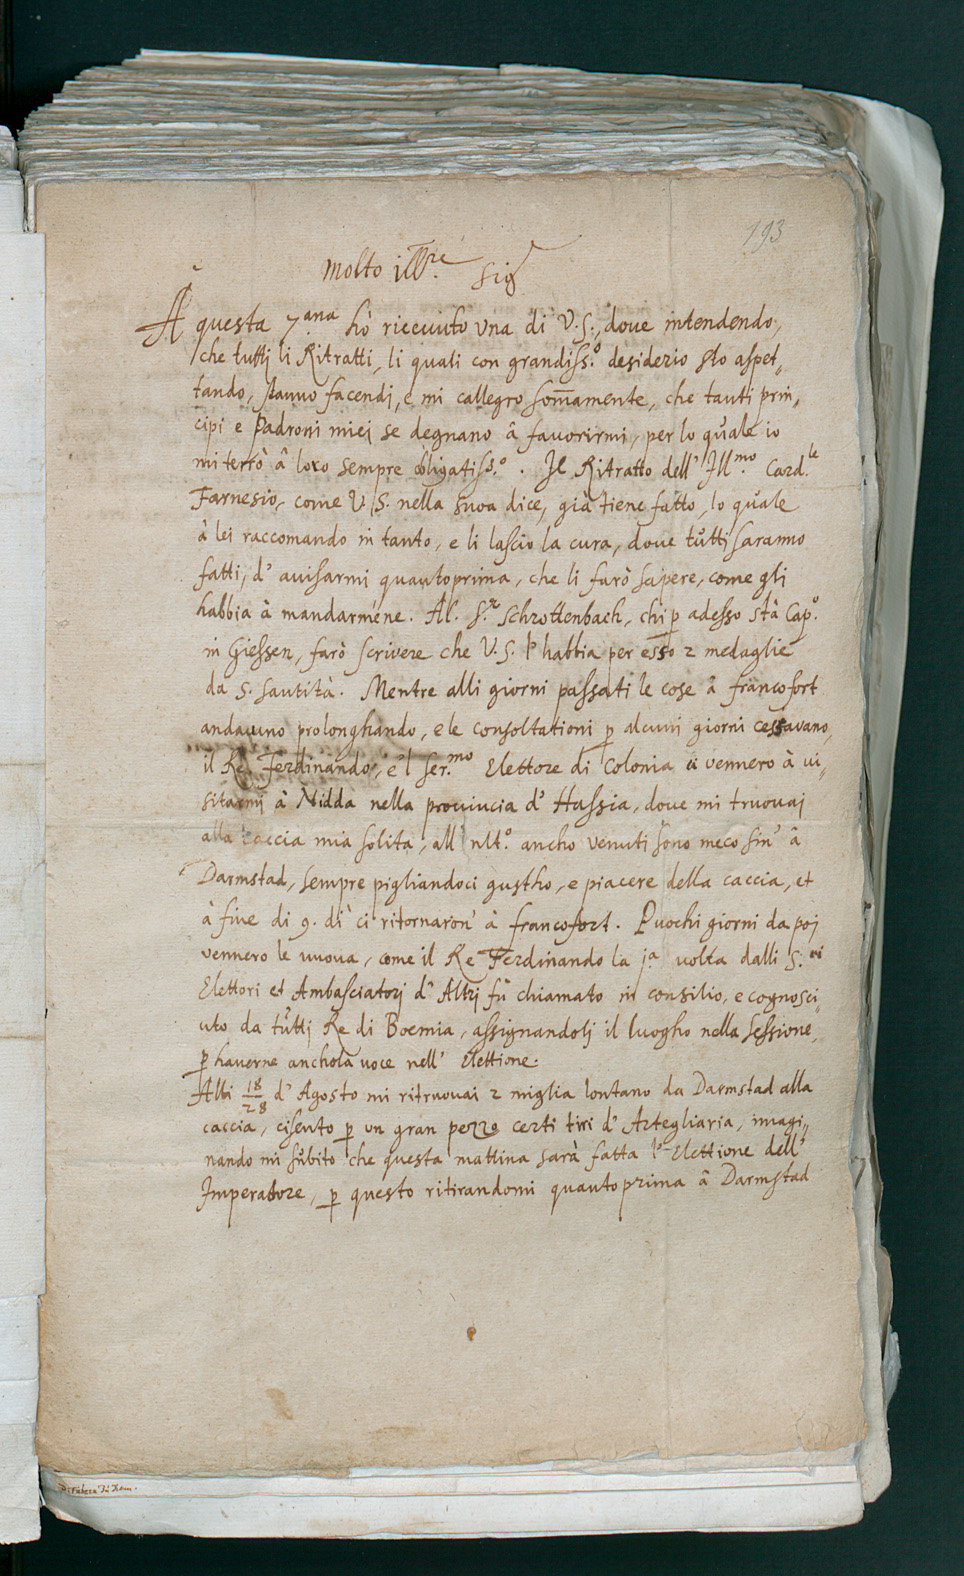 193
Molto ill.re Sig.r
A questa 7.ana hò riceuuto una di V.S., doue intendendo,
che tuttj li Ritratti, li quali con grandiss.o desiderio sto aspet„
tando, stanno facendj, e mi callegro som̅amente, che tanti prin„
cipi e Padroni miej se degnano â fauorirmi, per lo quale io
mi terrò â loro sempre obligatiss.o. Il Ritratto dell' Ill.mo Card.le
Farnesio, come V.S. nella suoa dice, già tiene fatto, lo quale
à lei raccomando in tanto, e li lascio la cura, doue tutti saranno
fatti, d' auisarmi quantoprima, che li farò sapere, come gli
habbia à mandarmene. Al S.r Schrottenbach, chi p adesso stà Cap.o
in Giessen, farò scrivere che V.S. l' habbia per esso 2 medaglie
da S. Santità. Mentre alli giorni passati le cose â francofort
andauuno prolonghando, e le consoltationi p alcuni giorni cessavano,
il Re Ferdinando, e'l ser.mo Elettore di Colonia vennero à ui„
sitarmi à Nidda nella prouincia d' Hassia, doue mi truouaj
alla caccia mia solita, all' ult.o ancho venuti sono meco sin' â
Darmstad, sempre pigliandoci gustho, e piacere della caccia, et
à fine di 9. dì ci ritornaron' à francofort. Puochi giorni da poj
vennero le nuoua, come il Re Ferdinando la j.a uolta dalli S.ri
Elettori et Ambasciatorj d' Altrj fû chiamato in consilio, e cognosci„
uto da tuttj Re di Boemia, assignandolj il luogho nella Sessione,
p hauerne anchola uoce nell' Elettione.
Alli 18/28 d' Agosto mi ritruouai 2 miglia lontano da Darmstad alla
caccia, e sento p un gran pezzo certi tiri d' Artegliaria, imagi„
nando mi subito che questa mattina sarà fatta l' Elettione dell'
Imperatore, p questo ritirandomi quantoprima â Darmstad